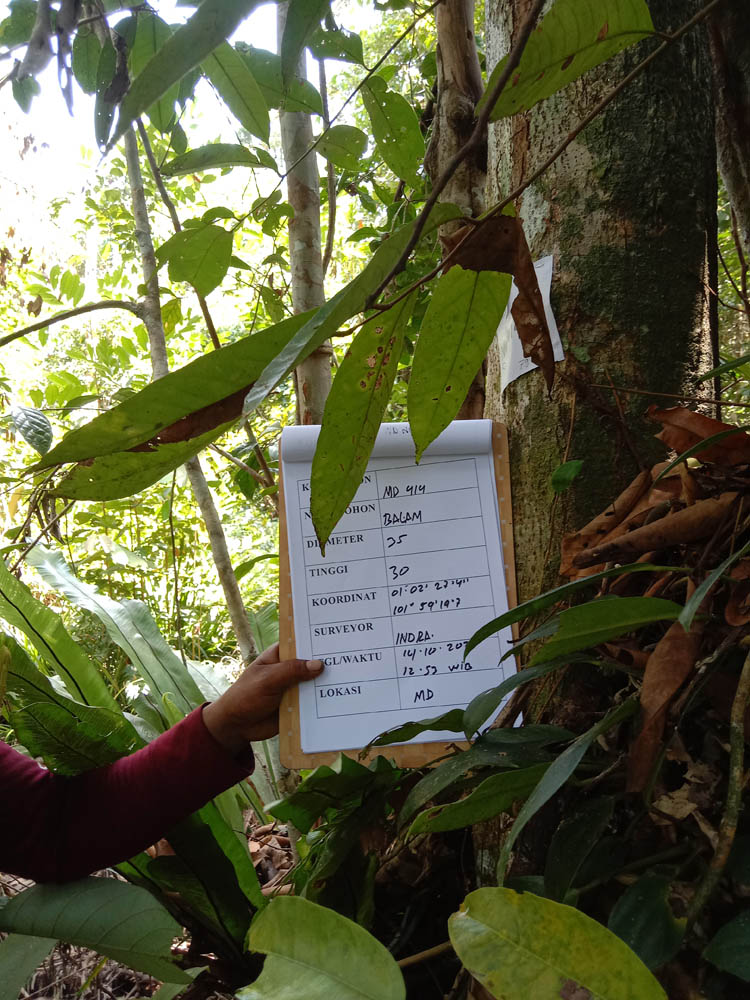 MD 414
BALAM
DIAMETER 25
TINGGI 30
KOORDINAT 01°02'27.4"
101°59'19.7
SURVEYOR INDRA.
14.10.20
12.53 WIB
LOKASI MD